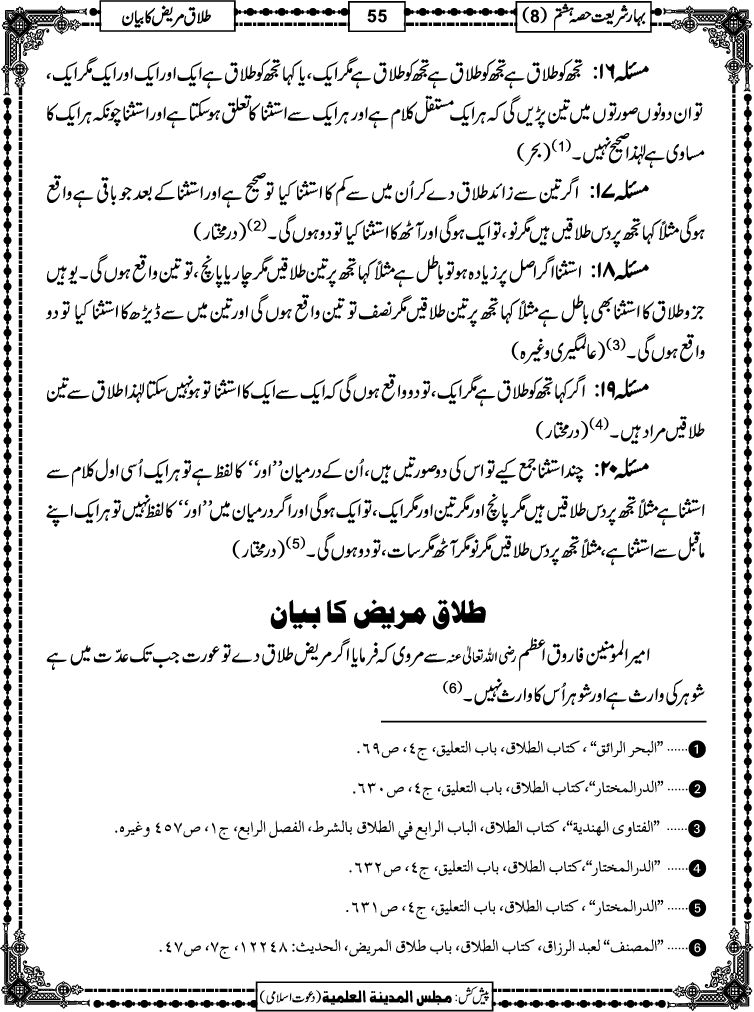 بہارشریعت حصہ ہشتم (8)
55
طلاق مریض کا بیان
مسئلہ ۱۶: تجھ کو طلاق ہے تجھ کو طلاق ہے تجھ کو طلاق ہے مگر ایک، یا کہا تجھ کو طلاق ہے ایک اور ایک اور ایک مگر ایک،
تو ان دونوں صورتوں میں تین پڑیں گی کہ ہر ایک مستقل کلام ہے اور ہر ایک سے استثنا کا تعلق ہوسکتا ہے اور استثنا چونکہ ہر ایک کا
مساوی ہے لہٰذا صحیح نہیں۔ (1) (بحر)
مسئلہ ۱۷: اگر تین سے زائد طلاق دے کر اُن میں سے کم کا استثنا کیا تو صحیح ہے اور استثنا کے بعد جو باقی ہے واقع
ہوگی مثلاً کہا تجھ پر دس طلاقیں ہیں مگر نو، تو ایک ہوگی اور آٹھ کا استثنا کیا تو دو ہوں گی۔ (2) (درمختار)
مسئلہ ۱۸: استثنا اگر اصل پر زیادہ ہو تو باطل ہے مثلاً کہا تجھ پر تین طلاقیں مگر چار یا پانچ، تو تین واقع ہوں گی۔ یوہیں
جزو طلاق کا استثنا بھی باطل ہے مثلاً کہا تجھ پر تین طلاقیں مگر نصف تو تین واقع ہوں گی اور تین میں سے ڈیڑھ کا استثنا کیا تو دو
واقع ہوں گی۔ (3) (عالمگیری وغیرہ)
مسئلہ ۱۹: اگر کہا تجھ کو طلاق ہے مگر ایک، تو دو واقع ہوں گی کہ ایک سے ایک کا استثنا تو ہو نہیں سکتا لہٰذا طلاق سے تین
طلاقیں مراد ہیں۔ (4) (درمختار)
مسئلہ ۲۰: چند استثنا جمع کیے تو اس کی دو صورتیں ہیں، اُن کے درمیان ’’اور‘‘ کا لفظ ہے تو ہر ایک اُسی اول کلام سے
استثنا ہے مثلاً تجھ پر دس طلاقیں ہیں مگر پانچ اور مگر تین اور مگر ایک، تو ایک ہوگی اور اگر درمیان میں ’’اور‘‘ کا لفظ نہیں تو ہر ایک اپنے
ماقبل سے استثنا ہے، مثلاً تجھ پر دس طلاقیں مگر نو مگر آٹھ مگر سات، تو دو ہوں گی۔ (5) (درمختار)
طلاق مریض کا بیان
امیر المومنین فاروق اعظم رضی اللہ تعالیٰ عنہ سے مروی کہ فرمایا اگر مریض طلاق دے تو عورت جب تک عدّت میں ہے
شوہر کی وارث ہے اور شوہر اُس کا وارث نہیں۔ (6)
1 ...... ”البحر الرائق“ ، كتاب الطلاق، باب التعليق، ج٤، ص٦٩.
2 ...... ”الدرالمختار“،كتاب الطلاق، باب التعليق، ج٤، ص٦٣٠.
3 ...... ”الفتاوى الهندية“، كتاب الطلاق، الباب الرابع في الطلاق بالشرط، الفصل الرابع، ج١، ص٤٥٧ وغيره.
4 ...... ”الدرالمختار“،كتاب الطلاق، باب التعليق، ج٤، ص٦٣٢.
5 ...... ”الدرالمختار“ ، كتاب الطلاق، باب التعليق، ج٤، ص٦٣١.
6 ...... ”المصنف“ لعبد الرزاق، كتاب الطلاق، باب طلاق المريض، الحديث: ١٢٢٤٨، ج٧، ص٤٧.
پیش کش: مجلس المدینۃ العلمیۃ (دعوت اسلامی)